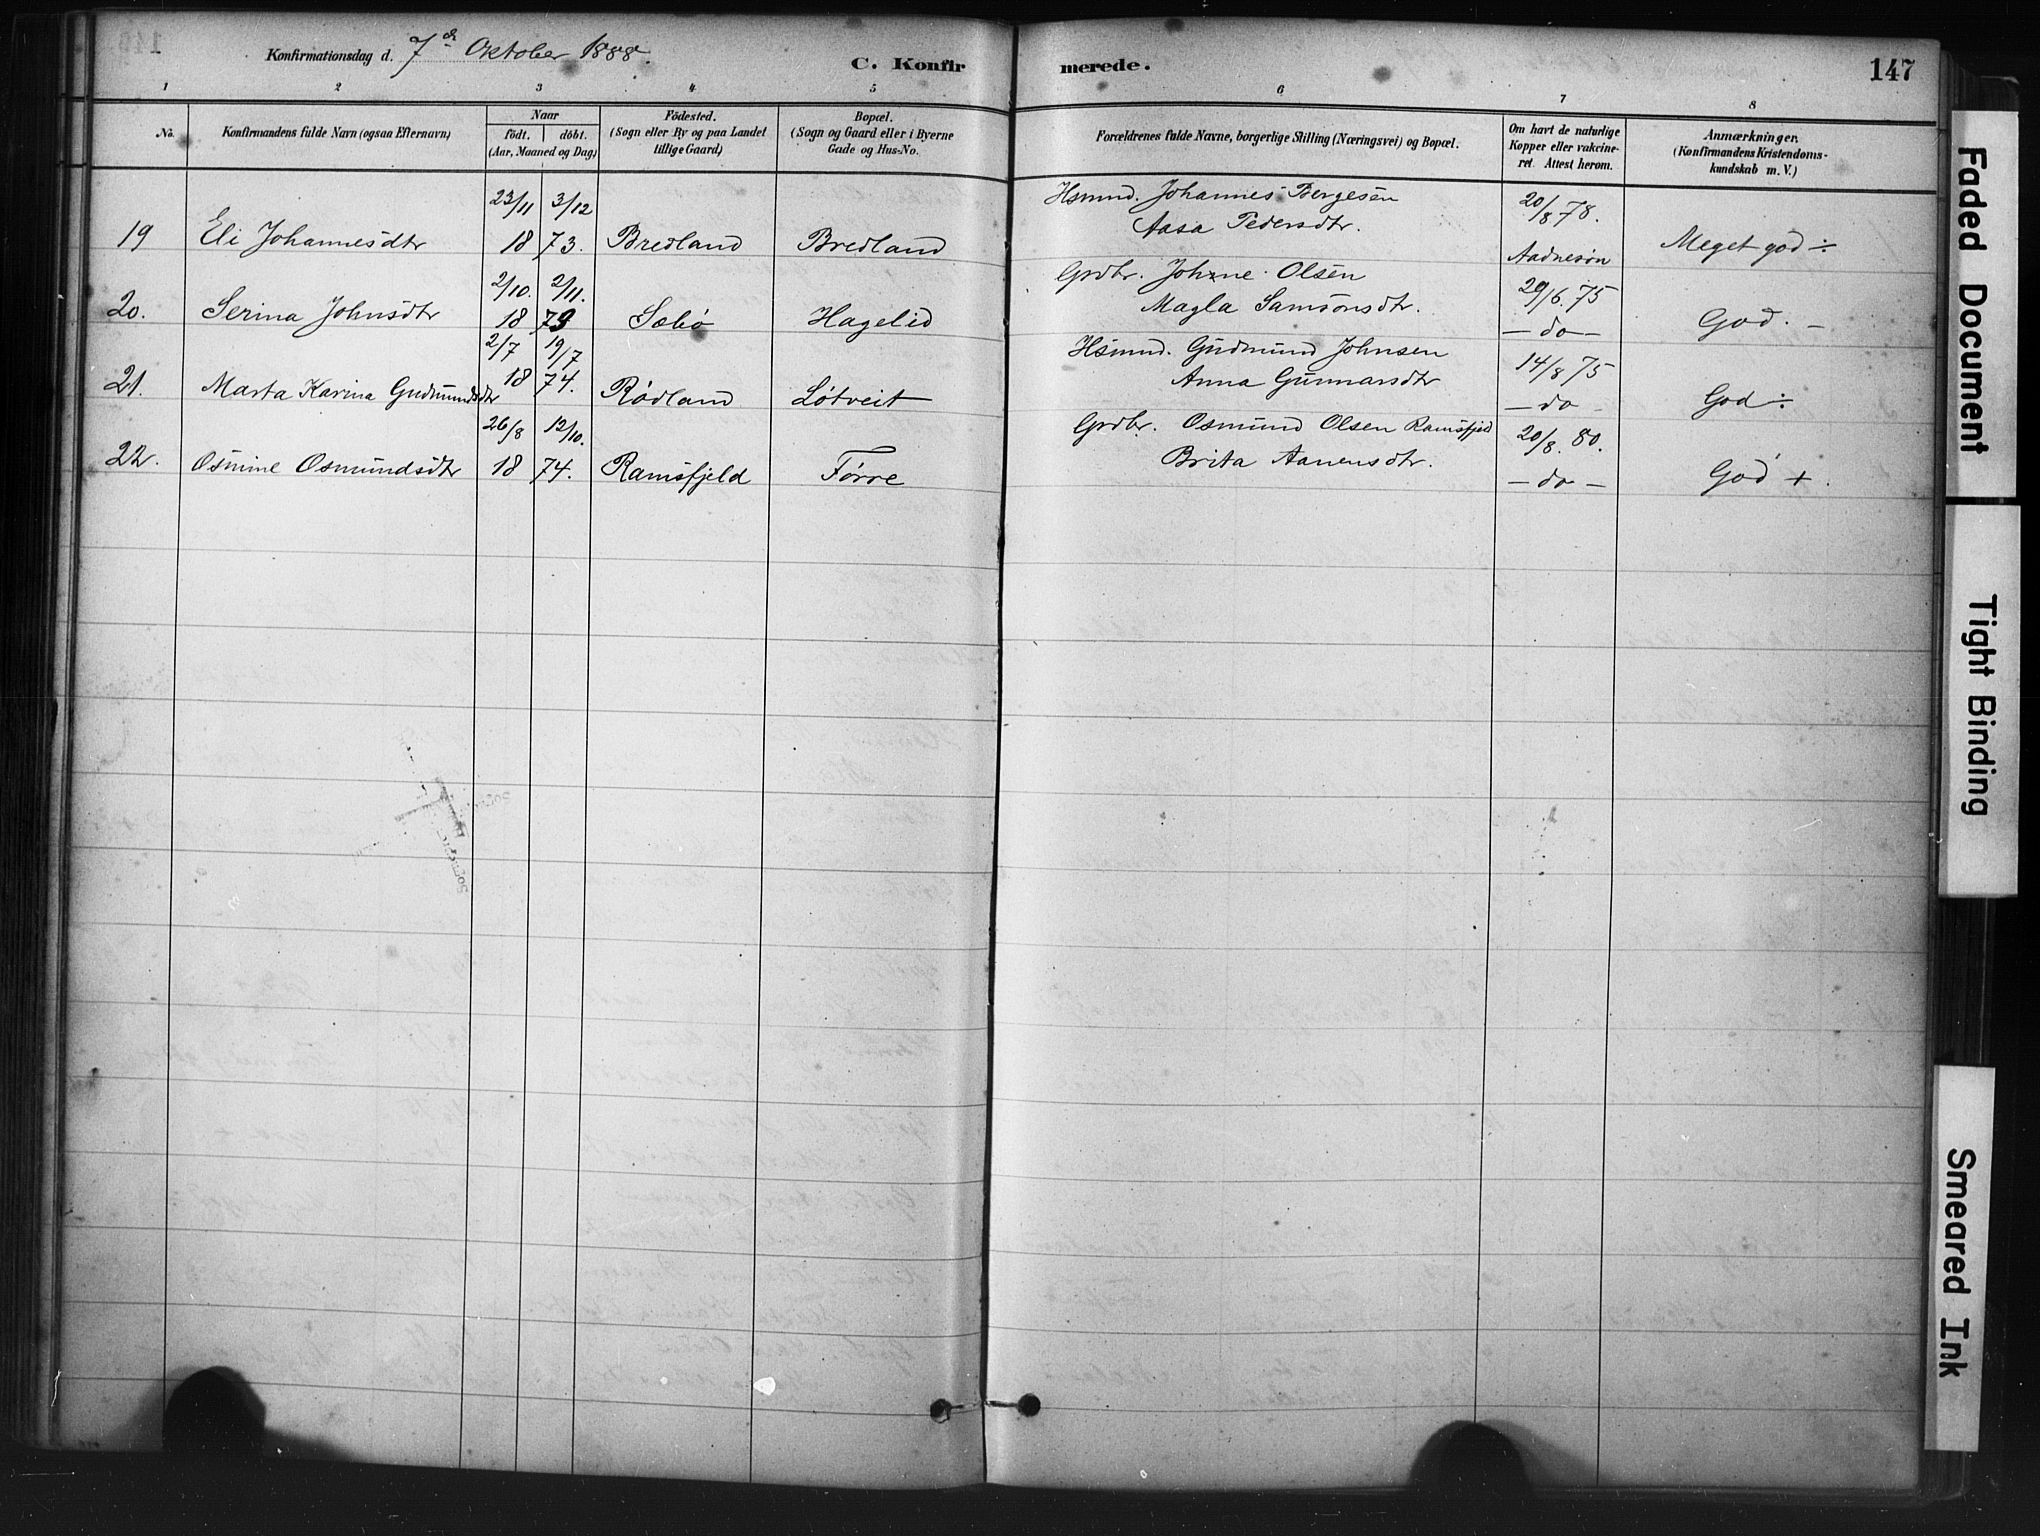 Konfirmationsdag d. 7de Oktober 1888.
C. Konfir merede. 147
1 2 3 4 5 6 7 8
No.
Konfirmandens fulde Navn (ogsaa Efternavn)
Naar
födt. döbt.
(Aar, Maaned og Dag)
Födested.
(Sogn eller By og paa Landet
tillige Gaard)
Bopæl.
(Sogn og Gaard eller i Byerne
Gade og Hus-No.
Forældrenes fulde Navne, borgerlige Stilling (Næringsvei) og Bopæl.
Om havt de naturlige
Kopper eller vakcine-
ret. Attest herom.
Anmærkninger.
(Konfirmandens Kristendoms-
kundskab m. V.)
23/11 3/12 Hsmnd. Johannes Bergesen 20/8 78.
19 Eli Johannesdtr 18 73. Bredland Bredland Aasa Pedersdtr. Aadnesön Meget god ÷
2/10. 2/11. Grdbr. Johne Olsen 29/6. 75
20. Serina Johnsdtr 18 73 Sæbö Hagelid Magla Samsonsdtr. — do — God. –
2/7 19/7 Hsmnd. Gudmund Johnsen 14/8 75
21. Marta Karina Gudmundsdtr 18 74. Rödland Lötveit Anna Gunnarsdtr — do – God ÷
26/8 12/10. Grdbr. Osmund Olsen Ramsfjeld 20/8. 80.
22. Osmine Osmundsdtr 18 74. Ramsfjeld Förre Brita Aanensdtr. — do — God + .
Faded Document
Tight Binding
Smeared Ink